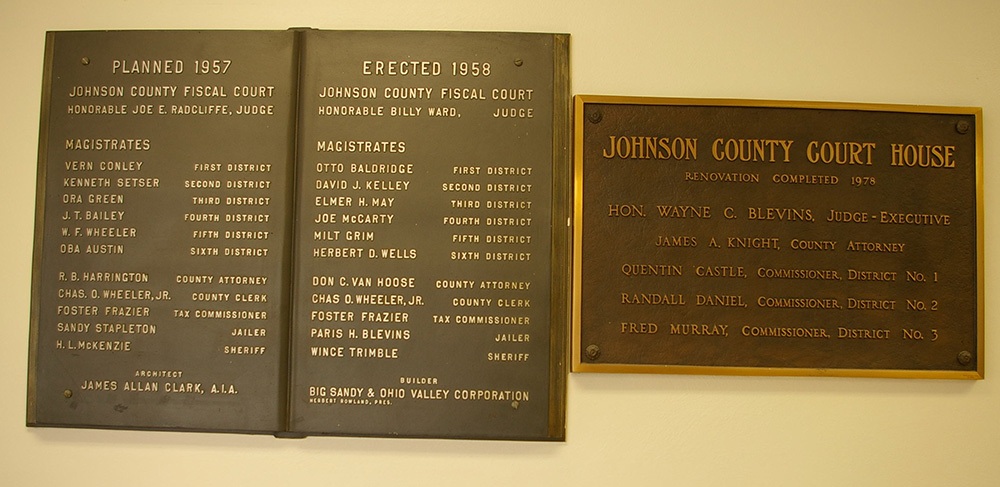 PLANNED 1957
JOHNSON COUNTY FISCAL COURT
HONORABLE JOE E. RADCLIFFE, JUDGE
MAGISTRATES
VERN CONLEY FIRST DISTRICT
KENNETH SETSER SECOND DISTRICT
ORA GREEN THIRD DISTRICT
J. T. BAILEY FOURTH DISTRICT
W. F. WHEELER FIFTH DISTRICT
OBA AUSTIN SIXTH DISTRICT
R. B. HARRINGTON COUNTY ATTORNEY
CHAS. O. WHEELER, JR. COUNTY CLERK
FOSTER FRAZIER TAX COMMISSIONER
SANDY STAPLETON JAILER
H. L. McKENZIE SHERIFF
ARCHITECT
JAMES ALLAN CLARK, A.I.A.
ERECTED 1958
JOHNSON COUNTY FISCAL COURT
HONORABLE BILLY WARD, JUDGE
MAGISTRATES
OTTO BALDRIDGE FIRST DISTRICT
DAVID J. KELLEY SECOND DISTRICT
ELMER H. MAY THIRD DISTRICT
JOE McCARTY FOURTH DISTRICT
MILT GRIM FIFTH DISTRICT
HERBERT D. WELLS SIXTH DISTRICT
DON C. VAN HOOSE COUNTY ATTORNEY
CHAS O. WHEELER, JR. COUNTY CLERK
FOSTER FRAZIER TAX COMMISSIONER
PARIS H. BLEVINS JAILER
WINCE TRIMBLE SHERIFF
BUILDER
BIG SANDY & OHIO VALLEY CORPORATION
HERBERT ROWLAND, PRES.
JOHNSON COUNTY COURT HOUSE
RENOVATION COMPLETED 1978
HON. WAYNE C. BLEVINS, JUDGE-EXECUTIVE
JAMES A. KNIGHT, COUNTY ATTORNEY
QUENTIN CASTLE, COMMISSIONER, DISTRICT NO. 1
RANDALL DANIEL, COMMISSIONER, DISTRICT NO. 2
FRED MURRAY, COMMISSIONER, DISTRICT NO. 3